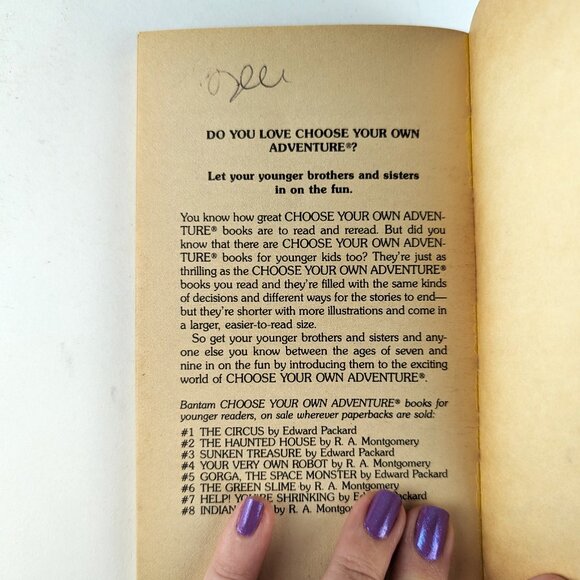 DO YOU LOVE CHOOSE YOUR OWN
ADVENTURE®?
Let your younger brothers and sisters
in on the fun.
You know how great CHOOSE YOUR OWN ADVEN-
TURE® books are to read and reread. But did you
know that there are CHOOSE YOUR OWN ADVEN-
TURE® books for younger kids too? They're just as
thrilling as the CHOOSE YOUR OWN ADVENTURE®
books you read and they're filled with the same kinds
of decisions and different ways for the stories to end—
but they're shorter with more illustrations and come in
a larger, easier-to-read size.
So get your younger brothers and sisters and any-
one else you know between the ages of seven and
nine in on the fun by introducing them to the exciting
world of CHOOSE YOUR OWN ADVENTURE®.
Bantam CHOOSE YOUR OWN ADVENTURE® books for
younger readers, on sale wherever paperbacks are sold:
#1 THE CIRCUS by Edward Packard
#2 THE HAUNTED HOUSE by R. A. Montgomery
#3 SUNKEN TREASURE by Edward Packard
#4 YOUR VERY OWN ROBOT by R. A. Montgomery
#5 GORGA, THE SPACE MONSTER by Edward Packard
#6 THE GREEN SLIME by R. A. Montgomery
#7 HELP! YOU'RE SHRINKING by Packard
#8 INDIAN by R. A.